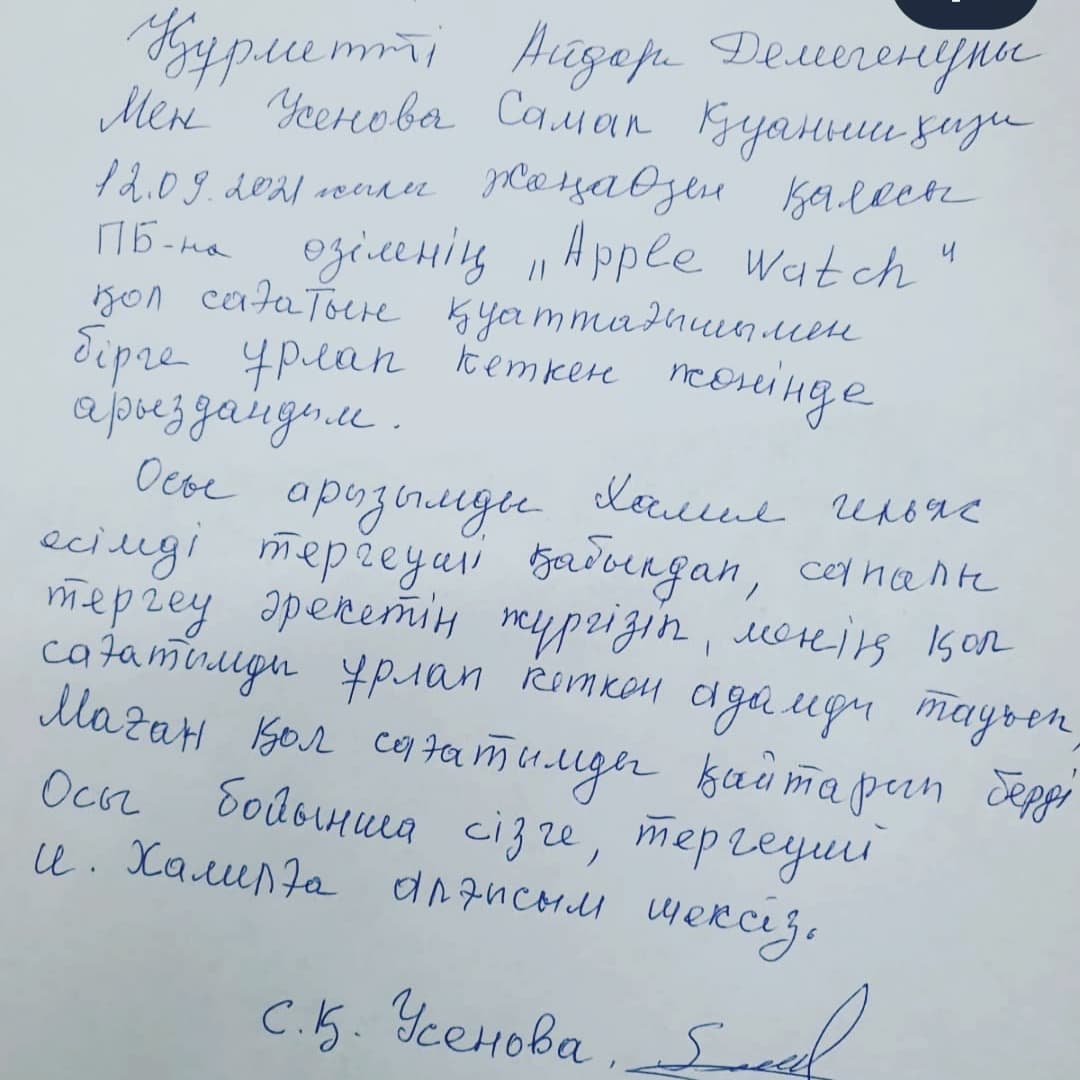 Құрметті Айдар Демегенұлы
Мен Усенова Самал Қуанышқизи
12.09.2021 жилы Жаңаөзен қаласы
ПБ-на өзіменің „Apple Watch"
қол сағатын қуаттағышымен
бірге ұрлап кеткен жөнінде
арыздандым.
Осы арызымды Халил Ильяс
есімді тергеуші қабылдап, сапалы
тергеу әрекетін жүргізіп, менің қол
сағатимды ұрлап кеткен адамды тауып,
Маған қол сағатимды қайтарып берді
Осы бойынша сізге, тергеуші
И. Халилға алғисым шексіз.
С.Қ. Усенова.